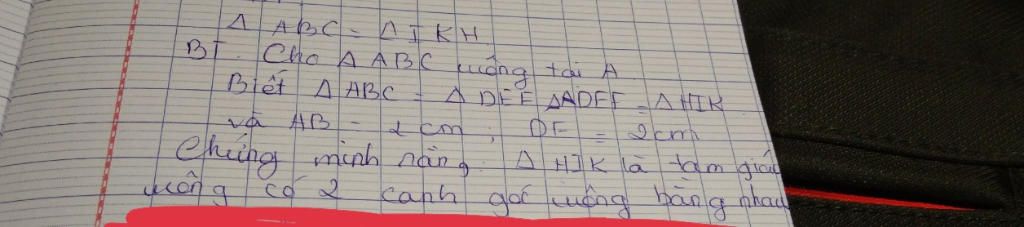 Δ ABC = Δ I K H
BT. Cho Δ ABC vuông tại A
Biết Δ ABC = Δ DEF, ΔDEF = Δ HIK
và AB = 2 cm ; DF = 2cm
Chứng minh rằng. Δ HIK là tam giác
vuông có 2 canh góc vuông bằng nhau